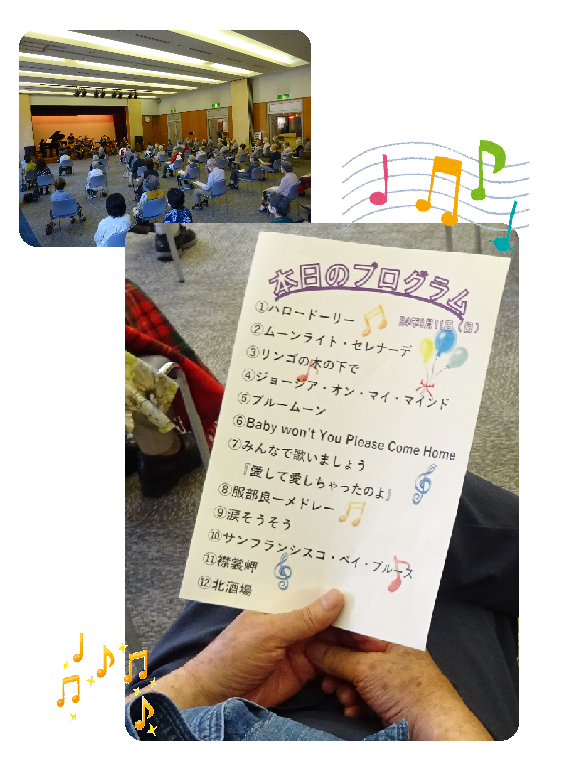 本日のプログラム
①ハロードーリー
②ムーンライト・セレナーデ
③リンゴの木の下で
④ジョージア・オン・マイ・マインド
⑤ブルームーン
⑥Baby won't You Please Come Home
⑦みんなで歌いましょう
『愛して愛しちゃったのよ』
⑧服部良一メドレー
⑨涙そうそう
⑩サンフランシスコ・ベイ・ブルース
⑪襟裳岬
⑫北酒場